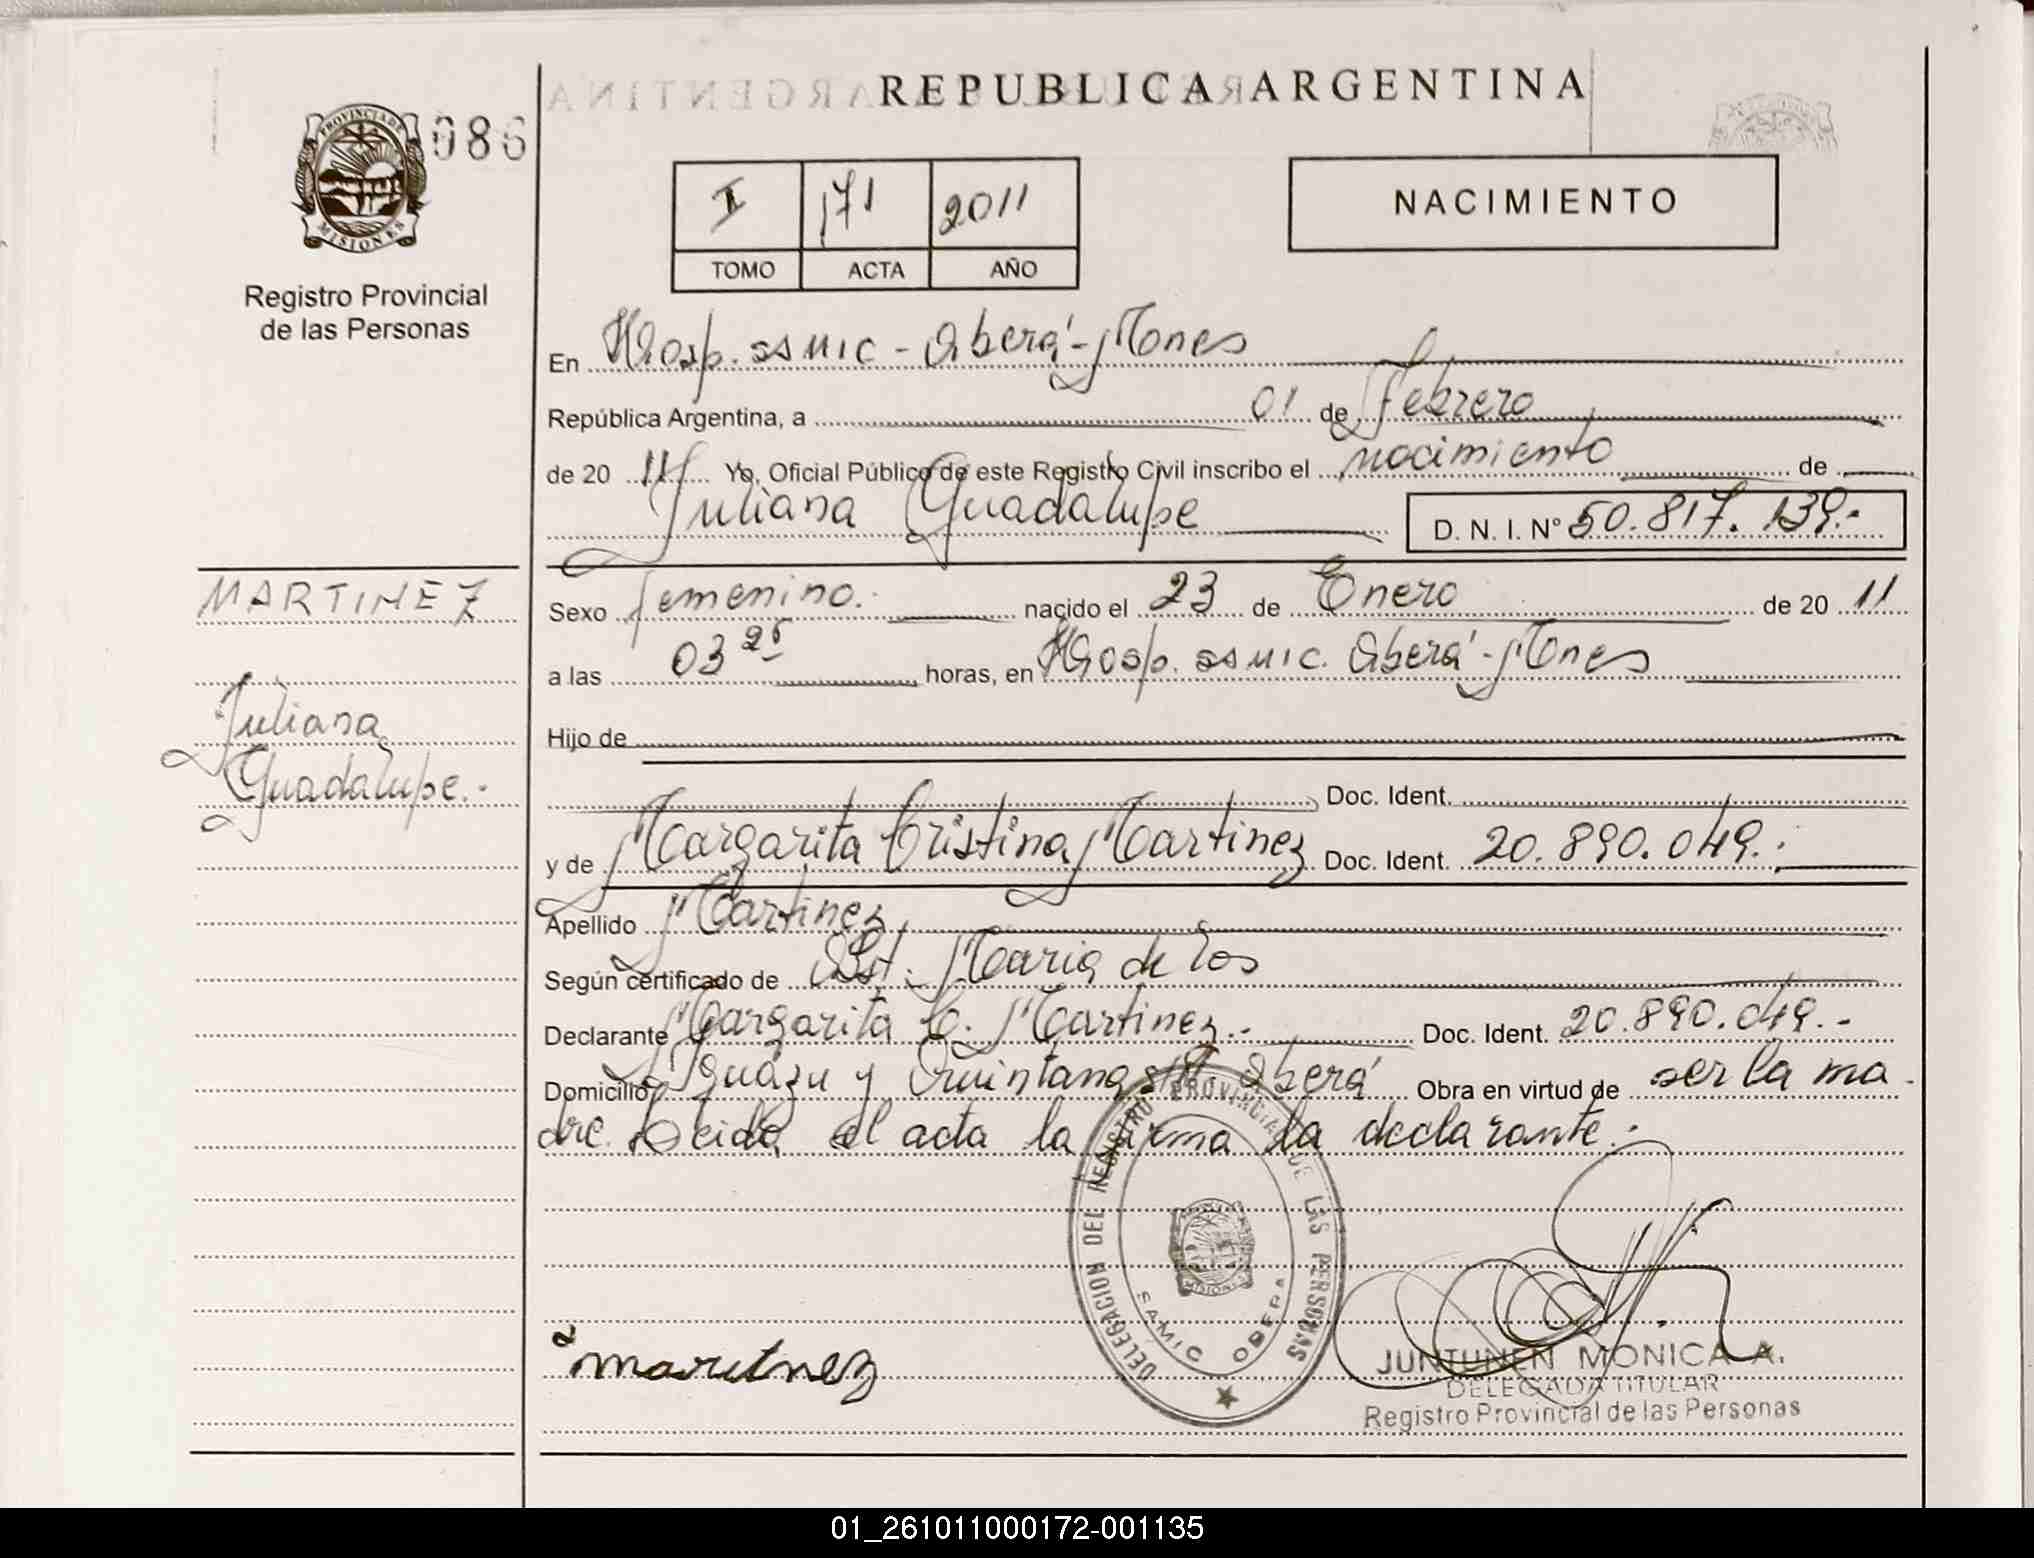 REPUBLICA ARGENTINA
PROVINCIA DE MISIONES
086
Registro Provincial
de las Personas
I 171 2011
TOMO ACTA AÑO
NACIMIENTO
En Hosp. SAMIC - Oberá - Mones
República Argentina, a 01 de febrero
de 20 11 Yo, Oficial Público de este Registro Civil inscribo el nacimiento de
Juliana Guadalupe D. N. I. Nº 50.817.139.-
MARTINEZ
Juliana
Guadalupe.-
Sexo femenino. nacido el 23 de Enero de 20 11
a las 03 horas, en Hosp. SAMIC. Oberá - Mones
Hijo de
Doc. Ident.
y de Margarita Cristina Martinez Doc. Ident. 20.890.049.-
Apellido Martinez
Según certificado de Obst. Maria de los
Declarante Margarita C. Martinez.- Doc. Ident. 20.890.049.-
Domicilio Iguazu y Quintana Oberá Obra en virtud de ser la ma
dre. Leida el acta la firma la declarante.-
DELEGACION DEL REGISTRO PROVINCIAL DE LAS PERSONAS
SAMIC OBERA
MISIONES
martnez
JUNTUNEN MONICA A.
DELEGADA TITULAR
Registro Provincial de las Personas
01_261011000172-001135